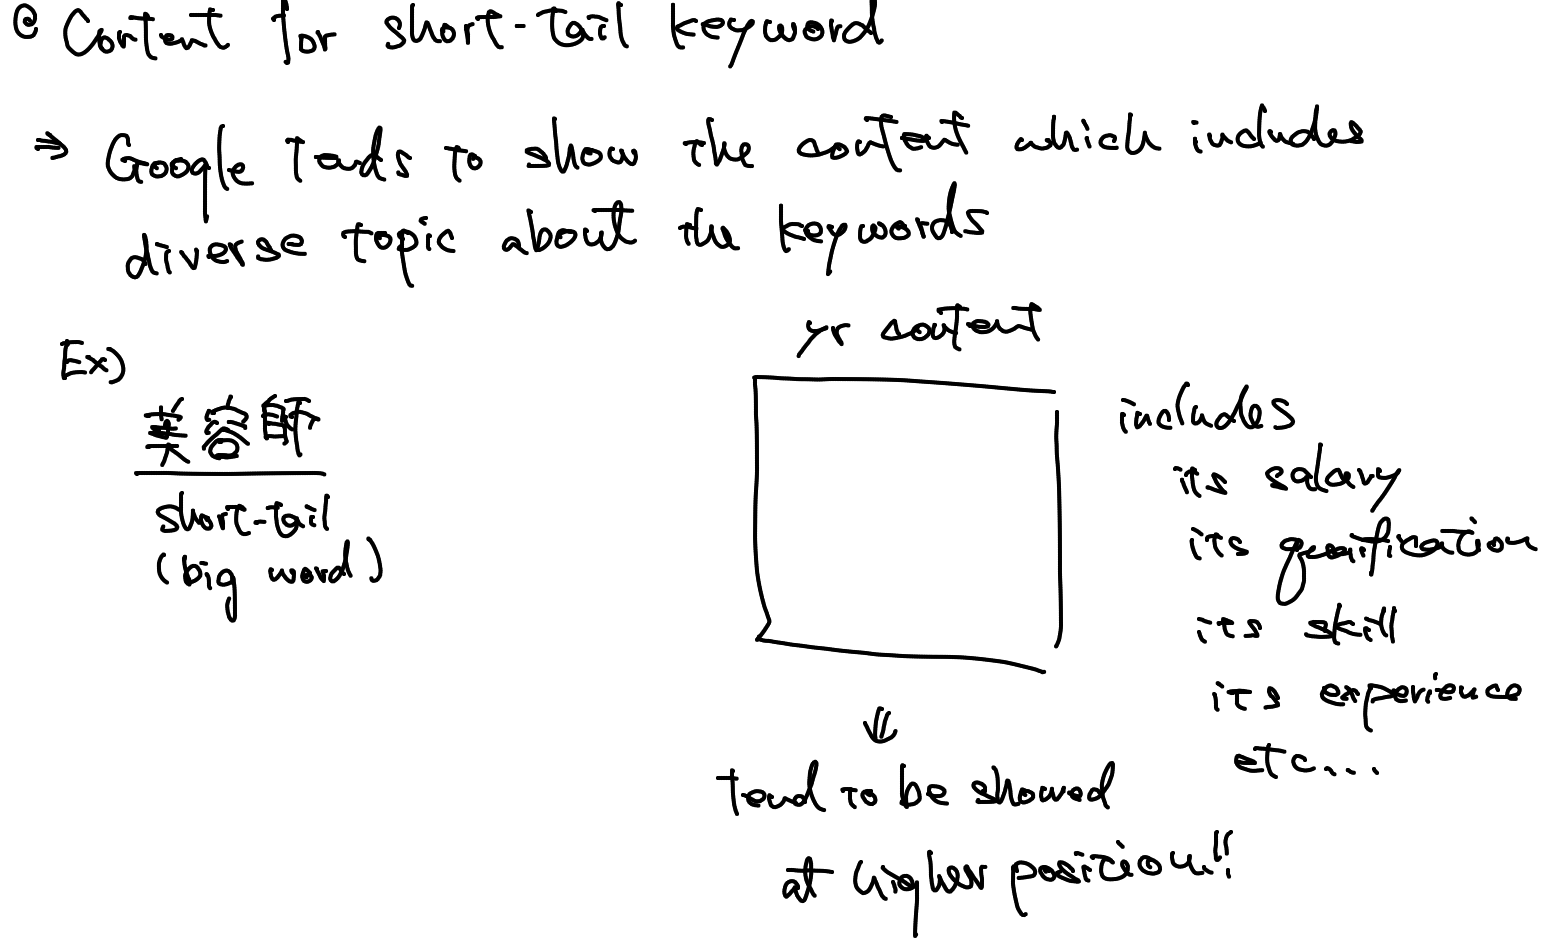 @ Content for short-tail keyword
⇒ Google tends to show the content which includes
diverse topic about the keywords
Ex)
美容師
short-tail
(big word)
yr content
includes
its salary
its
its skill
its experience
etc...
⇓
tend to be showed
at higher position!!